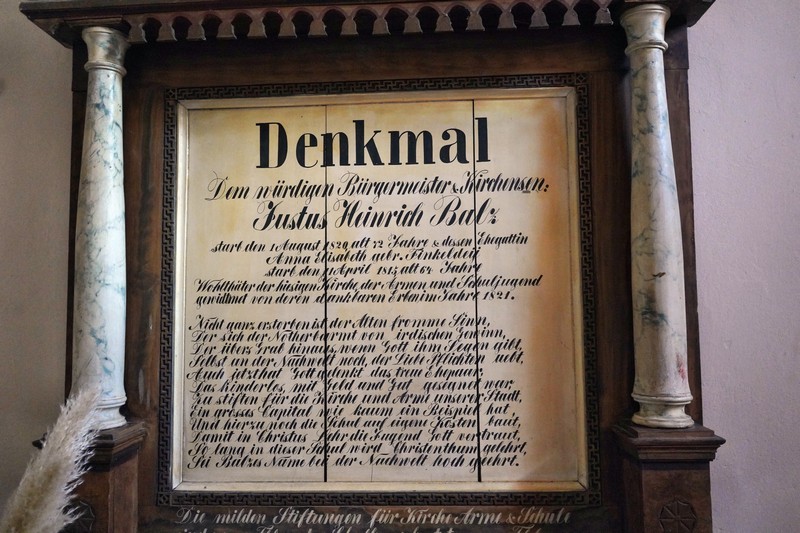 Denkmal
Dem würdigen Bürgermeister & Kirchensen:
Justus Heinrich Balz
starb den 1 August 1820 alt 72 Jahre & dessen Ehegattin
Anna Elisabeth gebr. Finkeldeÿ
starb den April 1815 alt 64 Jahre
Wohlthäter der hiesigen Kirche, der Armen und Schuljugend
gewidmet von deren dankbaren Erben im Jahre 1821.
Nicht ganz erstorben ist der Alten fromme Sinn,
Der sich der Noth erbarmt von irdischen Gewinn,
Der übers Grab hinaus, wenn Gott ihm Segen gibt,
Selbst an der Nachwelt noch, der Liebe Pflichten uebt,
Auch jetzt hat Gott gelenkt das treue Ehepaar,
Das kinderlos, mit Geld und Gut gesignet war
Zu stiften für die Kirche und Arme unserer Stadt,
Ein grosses Capital wie kaum ein Beispiel hat,
Und hierzu noch die Schul auf eigene Kosten baut,
Damit in Christus Lehr die Jugend Gott vertraut,
So lang in dieser Schul wird Christenthum gelehrt,
Sei Balzes Name bei der Nachwelt hoch geehrt.
Die milden Stiftungen für Kirche Arme & Schule